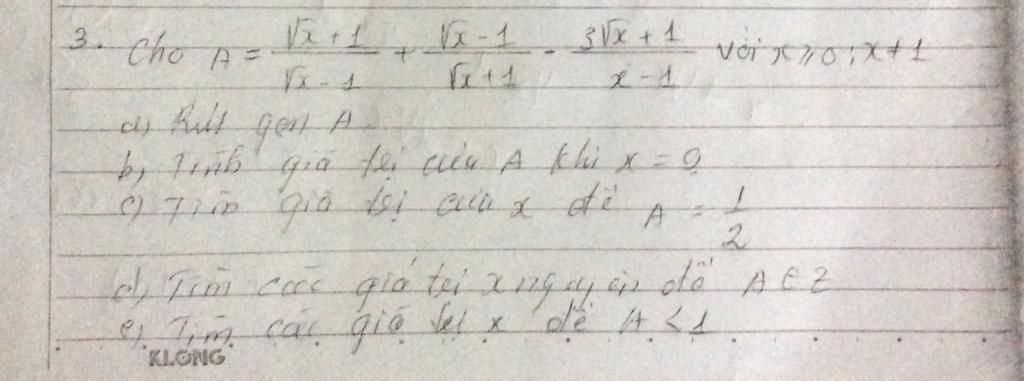 3. Cho A = \frac{\sqrt{x}+1}{\sqrt{x}-1} + \frac{\sqrt{x}-1}{\sqrt{x}+1} - \frac{3\sqrt{x}+1}{x-1} với x ≥ 0; x ≠ 1
a) Rút gọn A
b) Tính giá trị của A khi x = 9
c) Tìm giá trị của x để A = \frac{1}{2}
d) Tìm các giá trị x nguyên để A ∈ Z
e) Tìm các giá trị x để A < 1
KLONG